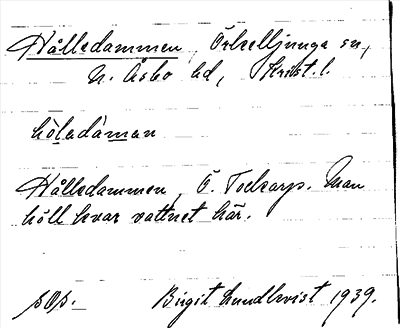 Hålledammen, Örkelljunga sn,
N. Åsbo hd, Krist. l.
hö̱lədàman
Hålledammen, Ö. Tockarp. Man
höll kvar vattnet här.
sOp. Birgit Lundkvist 1939.